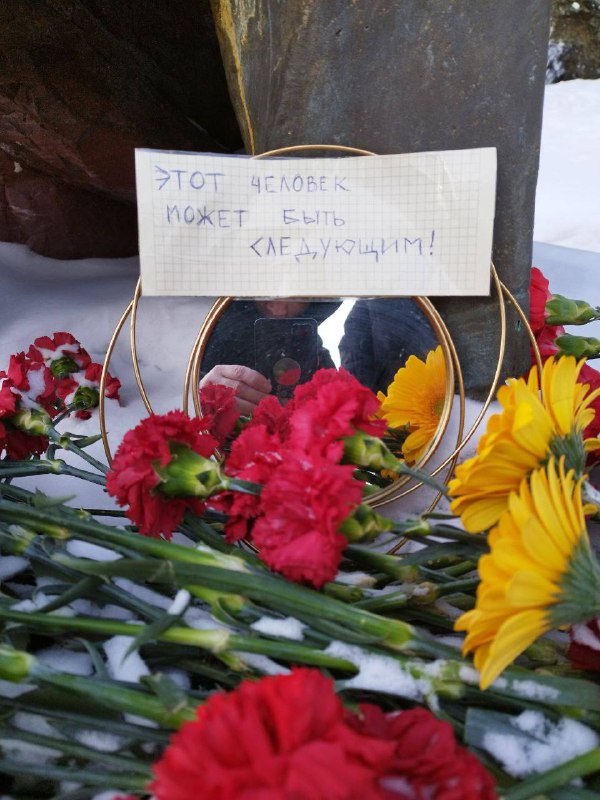 ЭТОТ ЧЕЛОВЕК
МОЖЕТ БЫТЬ
СЛЕДУЮЩИМ!